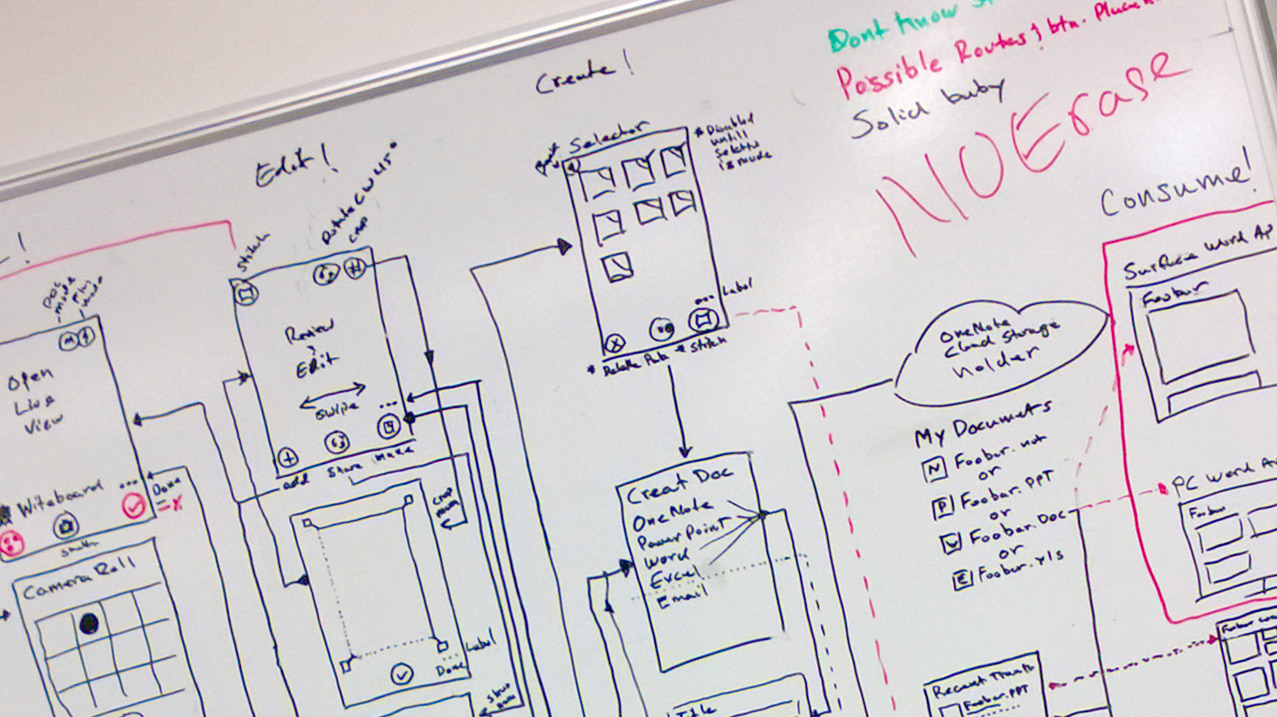 Dont know
Possible Routes & btn.
Solid baby
NO Erase
Create!
Edit!
Consume!
Selector
* Disabled
untill
is made
Label
* Delete
* Stitch
Stitch
Rotate CW 45°
crop
Review
&
Edit
Swipe
...
add
share
make
Doc
mode
Open
Live
View
Witeboard
...
Done
Camera Roll
crop
Label
Done
Creat Doc
OneNote
PowerPoint
Word
Excel
Email
Title
OneNote
Cloud Storage
holder
My Documets
N Foobar.not
or
P Foobar.PPT
or
W Foobar.Doc
or
E Foobar.xls
Surface Word Ap
Foobar
PC Word Ap
Foobar
Recent
Foobar.PPT
Foobar